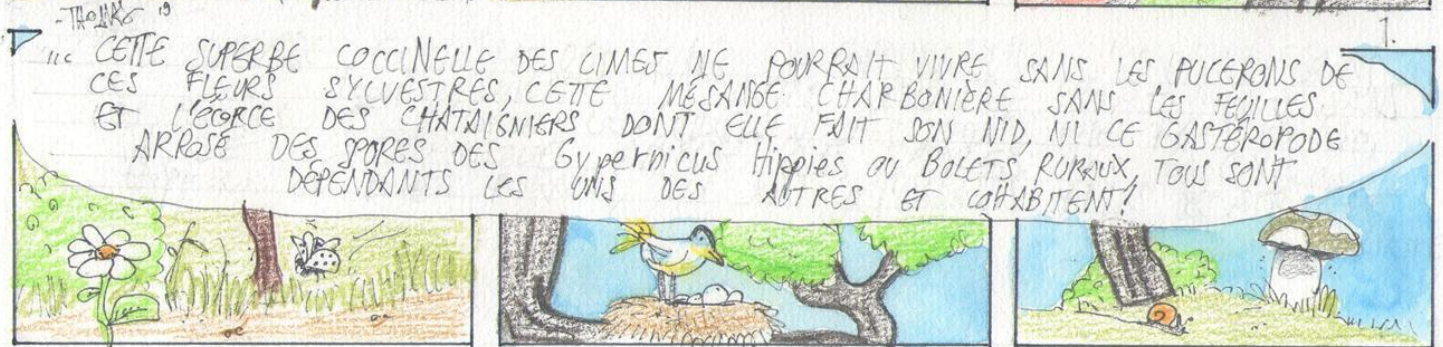 -THOMAS 19
1.
"CETTE SUPERBE COCCINELLE DES CIMES NE POURRAIT VIVRE SANS LES PUCERONS DE
CES FLEURS SYLVESTRES, CETTE MÉSANGE CHARBONIÈRE SANS LES FEUILLES
ET L'ÉCORCE DES CHATAIGNIERS DONT ELLE FAIT SON NID, NI CE GASTÉROPODE
ARROSÉ DES SPORES DES Gypernicus Hippies OU BOLETS RURAUX, TOUS SONT
DÉPENDANTS LES UNS DES AUTRES ET COHABITENT!